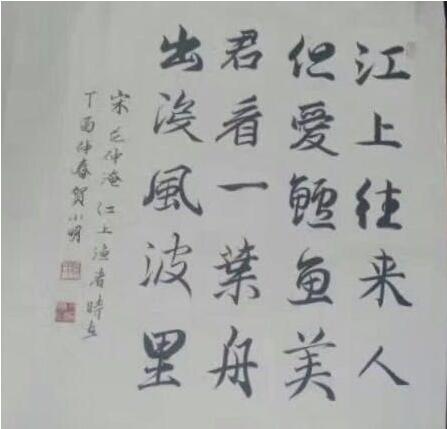 江上往来人
但愛鱸鱼美
君看一葉舟
出没風波里
宋范仲淹江上渔者時在
丁酉仲春贺小明